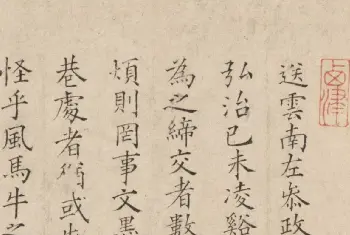 送雲南左叅政
弘治己未凌谿
為之締交者數
煩則罔事文墨
巷處者獨或生
怪乎風馬牛之